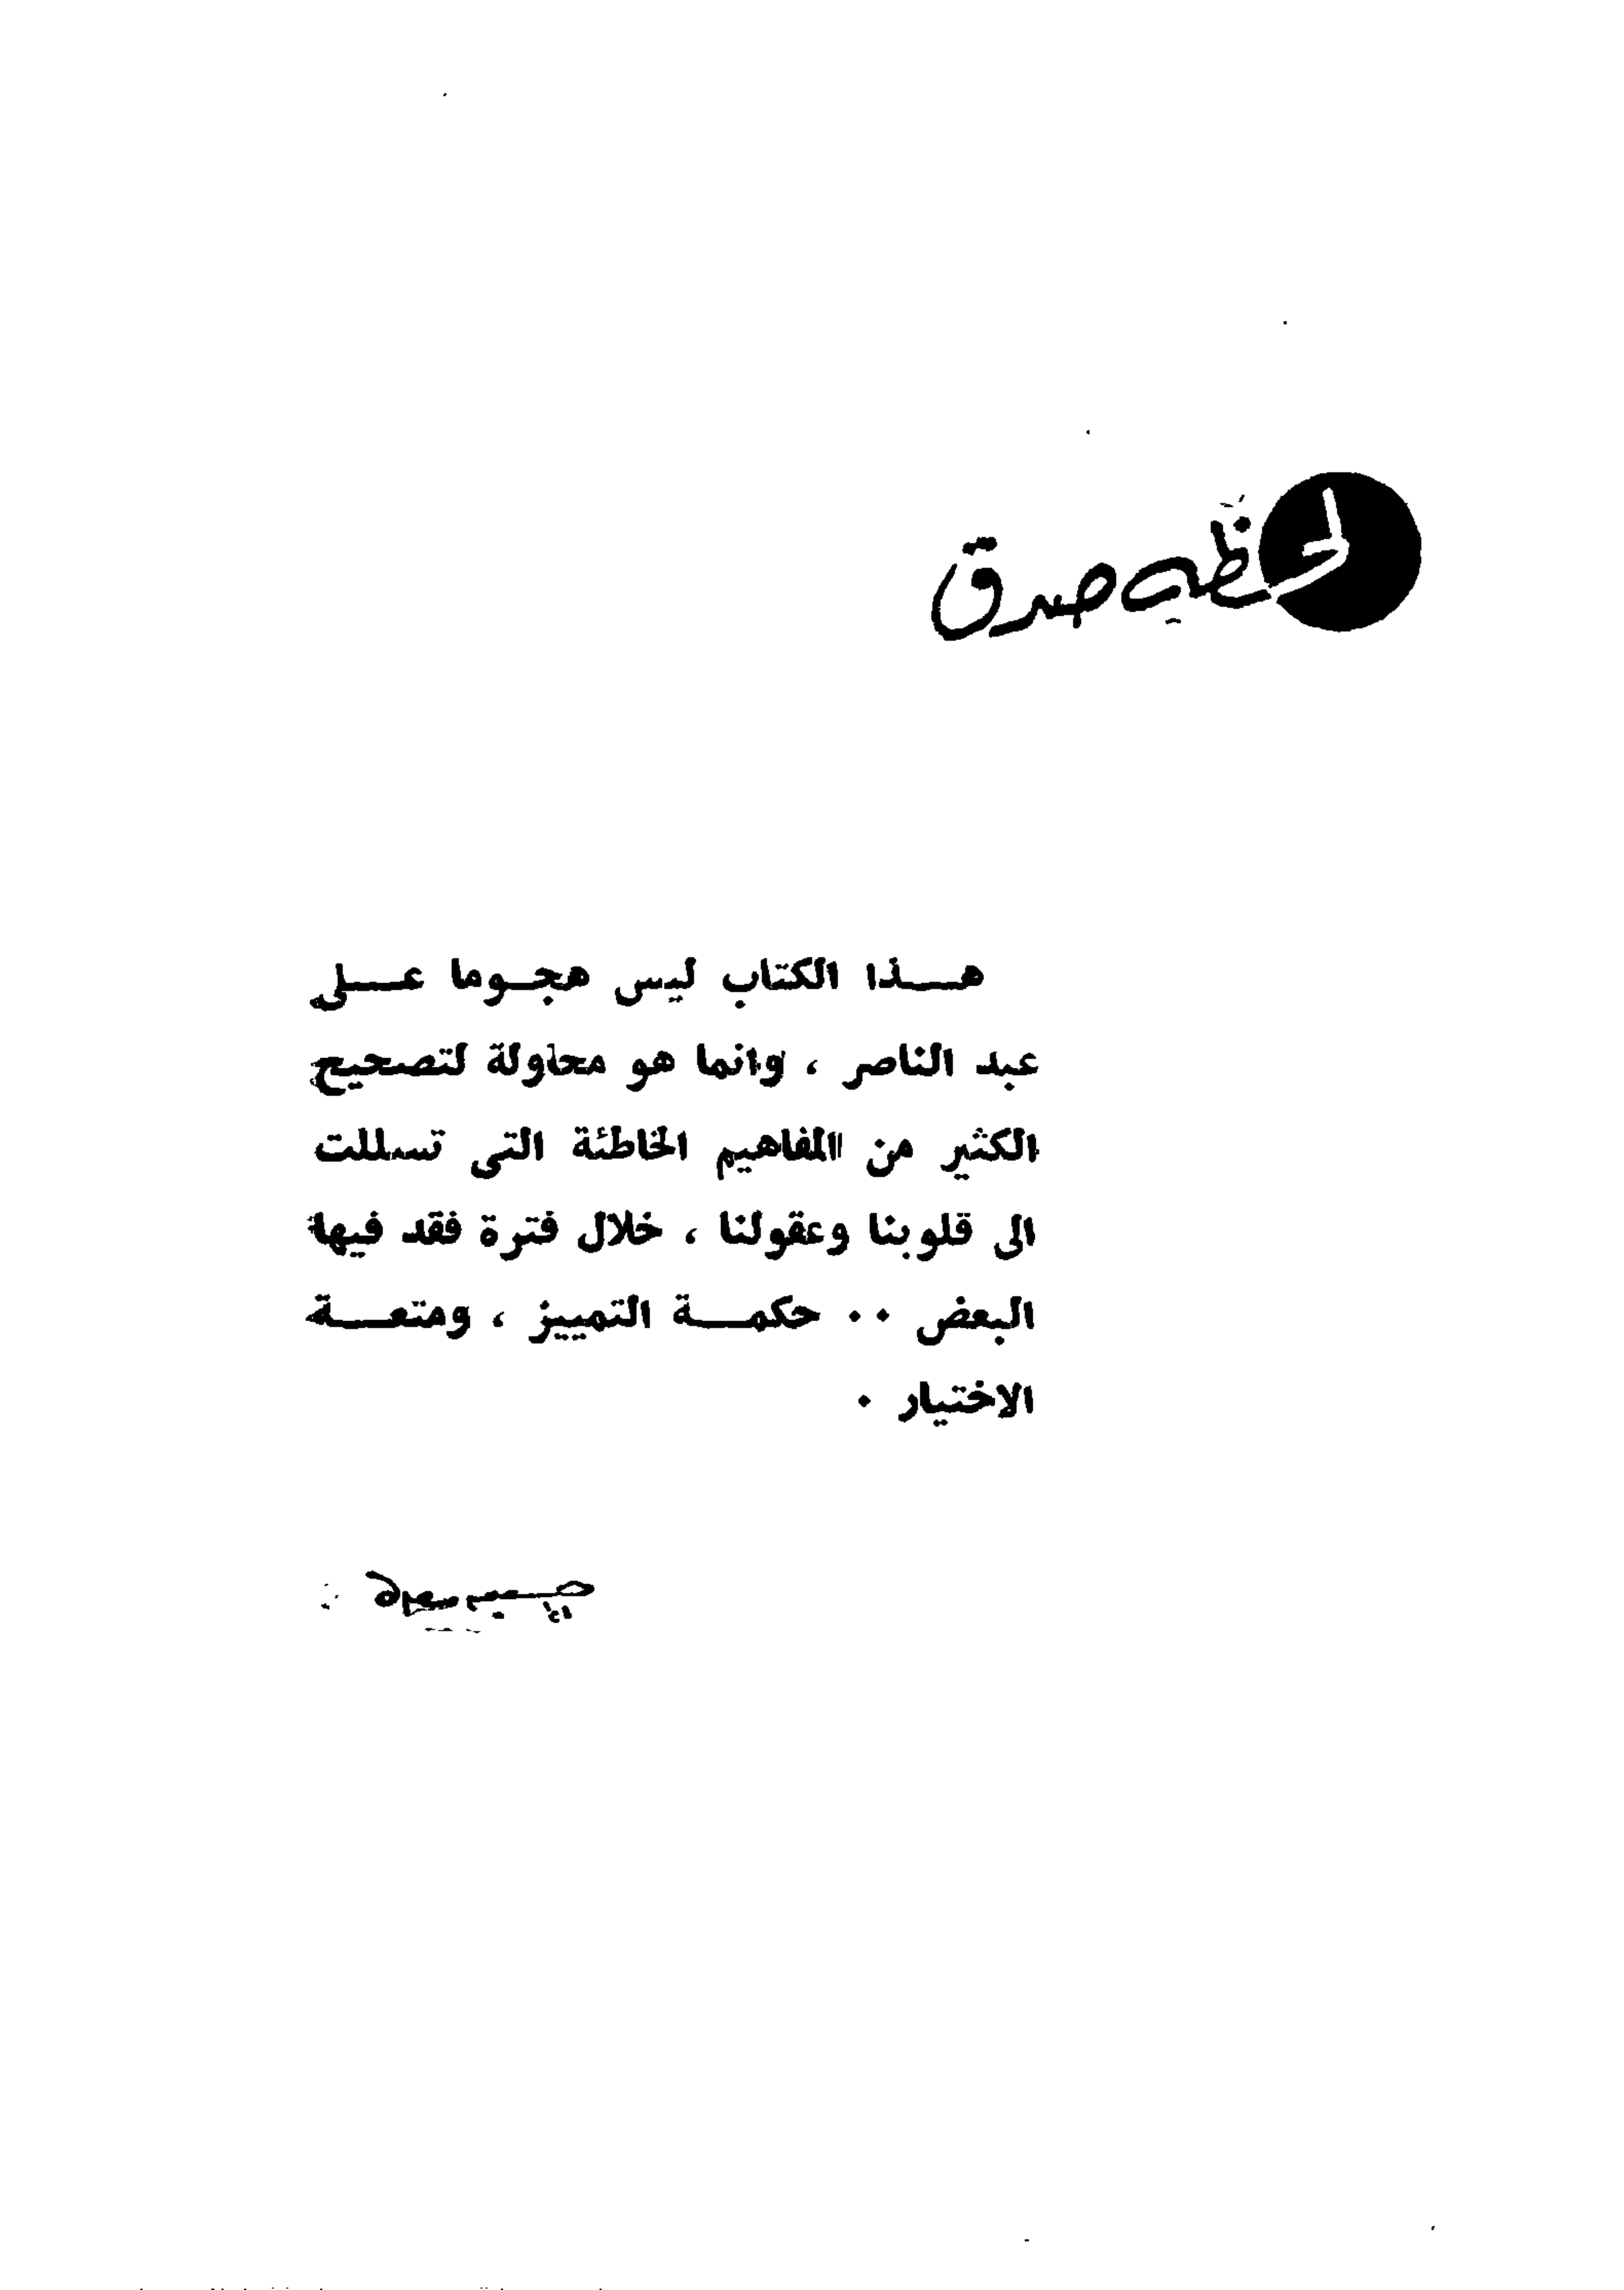 لحظة صدق
هذا الكتاب ليس هجوما على
عبد الناصر ، وانما هو محاولة لتصحيح
الكثير من المفاهيم الخاطئة التى تسللت
الى قلوبنا وعقولنا ، خلال فترة فقد فيها
البعض ٠٠ حكمة التمييز ، ومتعة
الاختيار ٠